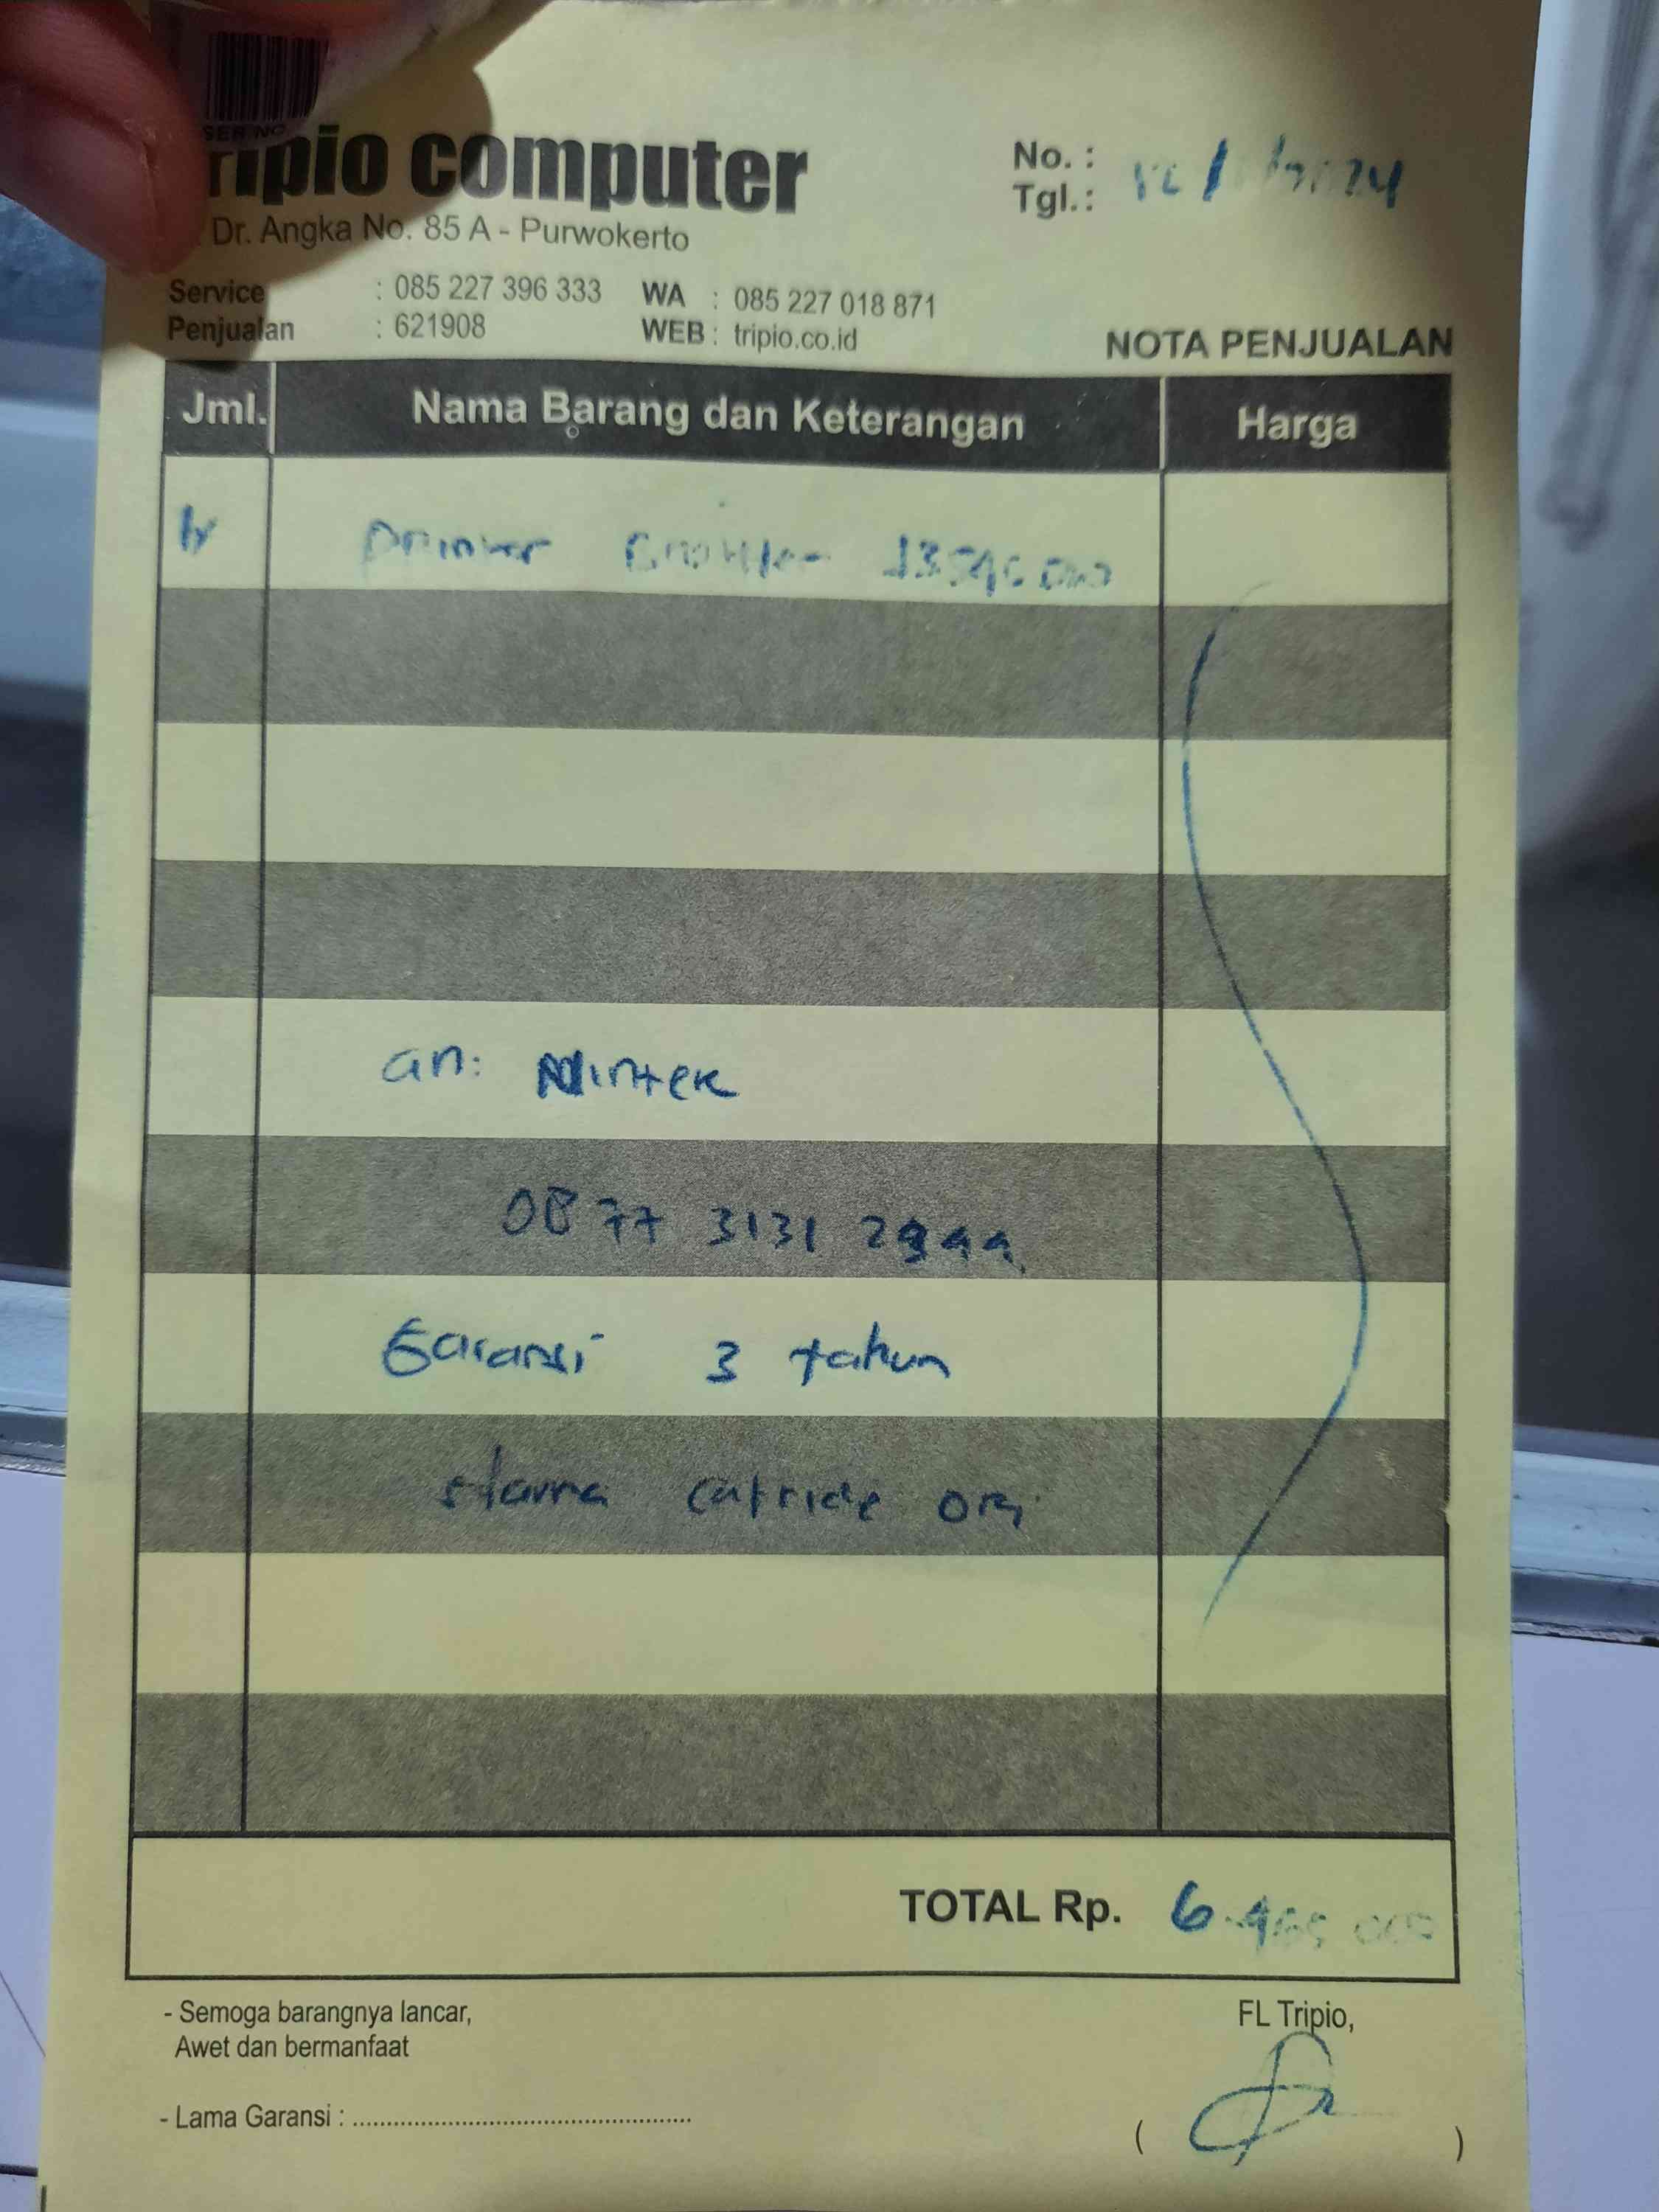 SER NO
tripio computer
Dr. Angka No. 85 A - Purwokerto
No. :
Tgl. :
Service : 085 227 396 333 WA : 085 227 018 871
Penjualan : 621908 WEB : tripio.co.id
NOTA PENJUALAN
Jml. Nama Barang dan Keterangan Harga
Printer Brother
an: Mintek
0877 3131
Garansi 3 tahun
catride ori
TOTAL Rp. 6.465.000
- Semoga barangnya lancar,
Awet dan bermanfaat
FL Tripio,
- Lama Garansi : ..................................................
( )